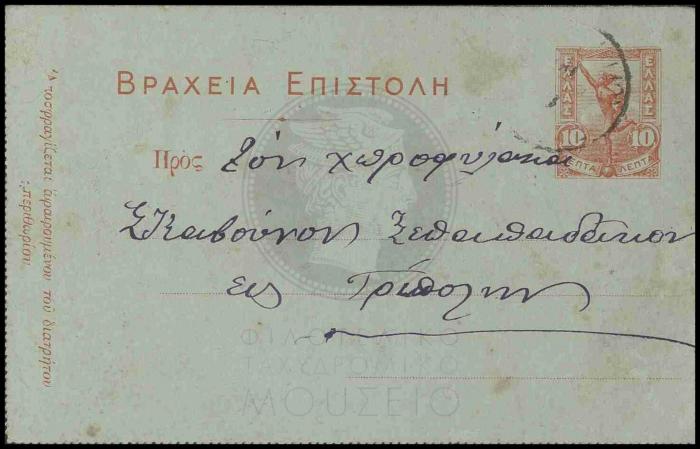 ΒΡΑΧΕΙΑ ΕΠΙΣΤΟΛΗ
ΕΛΛΑΣ ΕΛΛΑΣ
10 10
ΛΕΠΤΑ ΛΕΠΤΑ
Πρὸς Τὸν χωροφύλακα
εις Τρίπολην
Ἀποσφραγίζεται ἀφαιρουμένου τοῦ διατρήτου
περιθωρίου.
ΦΙΛΟΤΕΛΙΚΟ
ΤΑΧΥΔΡΟΜΙΚΟ
ΜΟΥΣΕΙΟ